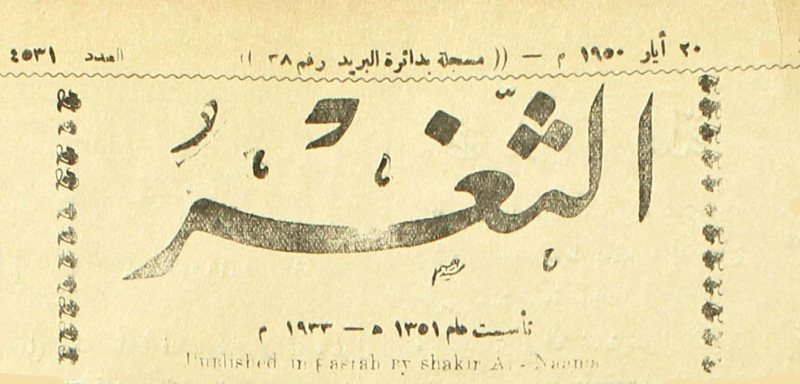 ٢٠ أيار ١٩٥٠ م — (( مسجلة بدائرة البريد رقم ٣٨ )) العدد ٤٥٣١
الثَّغْرُ
تأسست عام ١٣٥١ ه — ١٩٣٣ م
Published in Basrah By shakir Al-Naama